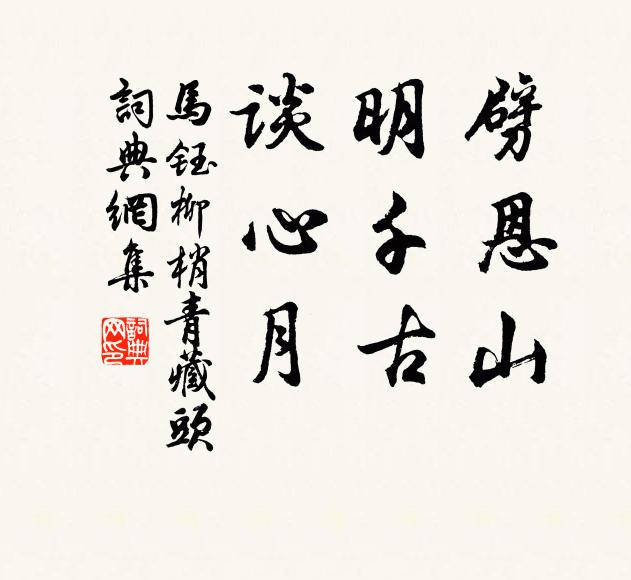 劈恩山
明千古
谈心月
馬鈺柳梢青藏頭
詞典網集
詞典网印